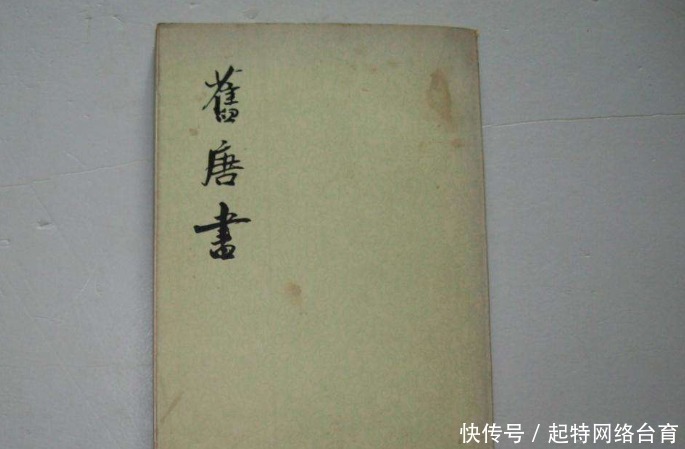 舊唐書
快传号/起特网络台育